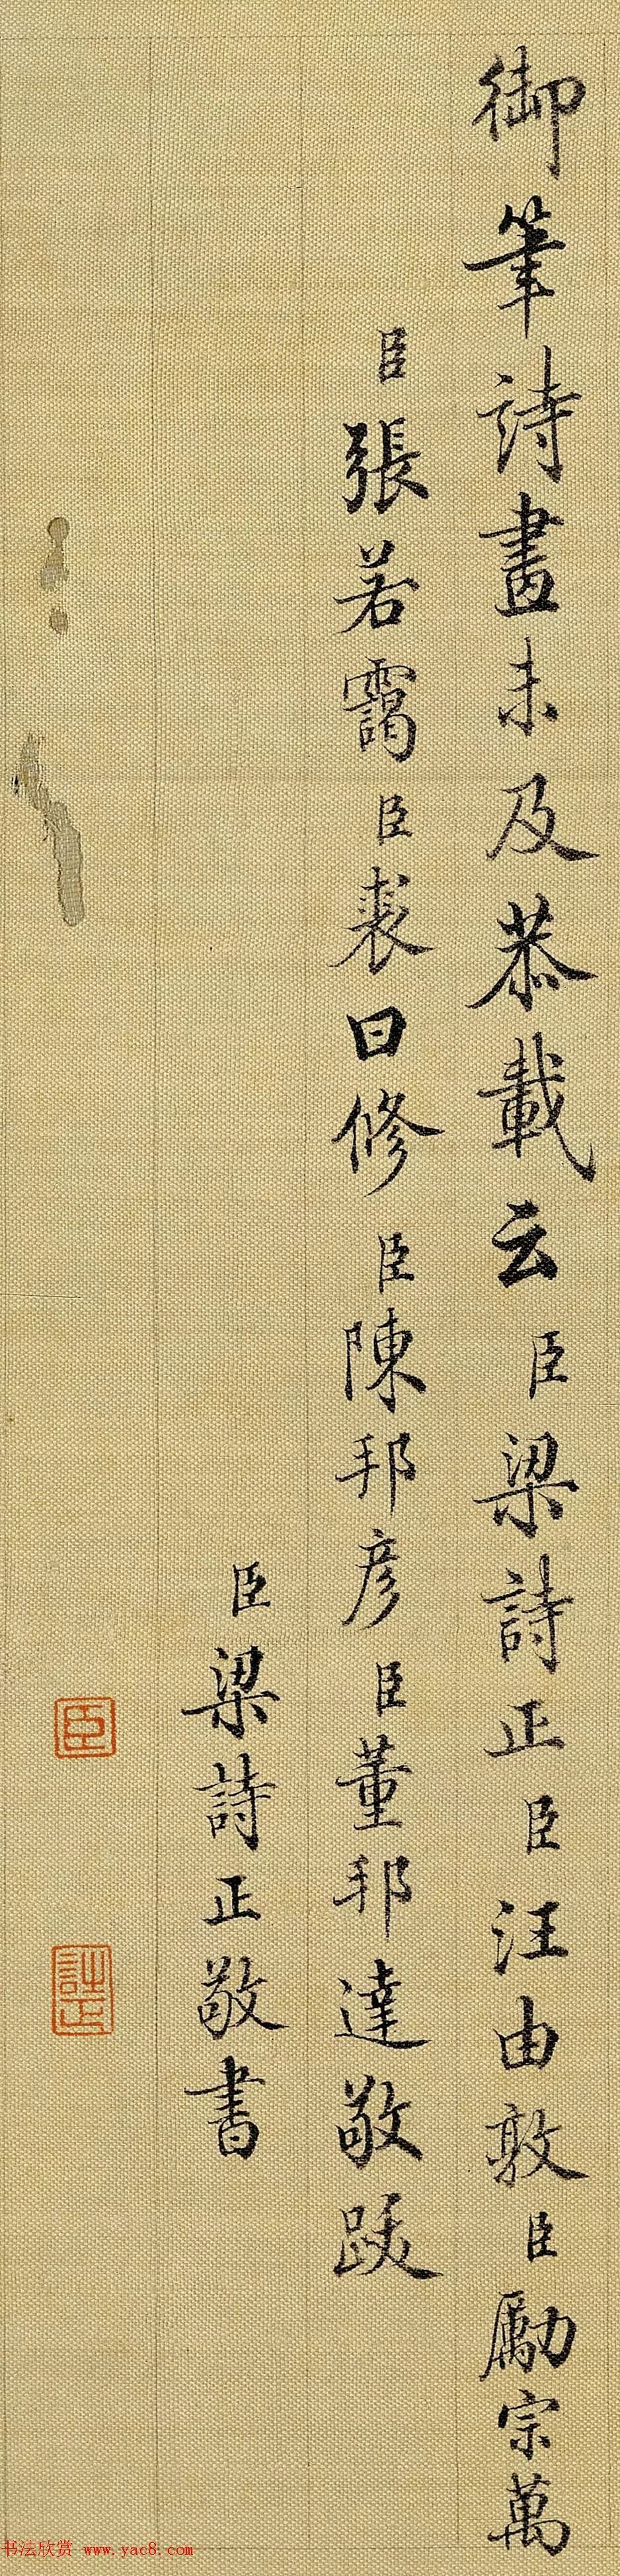 御筆詩畫未及恭載云臣梁詩正臣汪由敦臣勵宗萬
臣張若靄臣裘曰修臣陳邦彥臣董邦達敬跋
臣梁詩正敬書
臣
詩正
书法欣赏 www.yac8.com